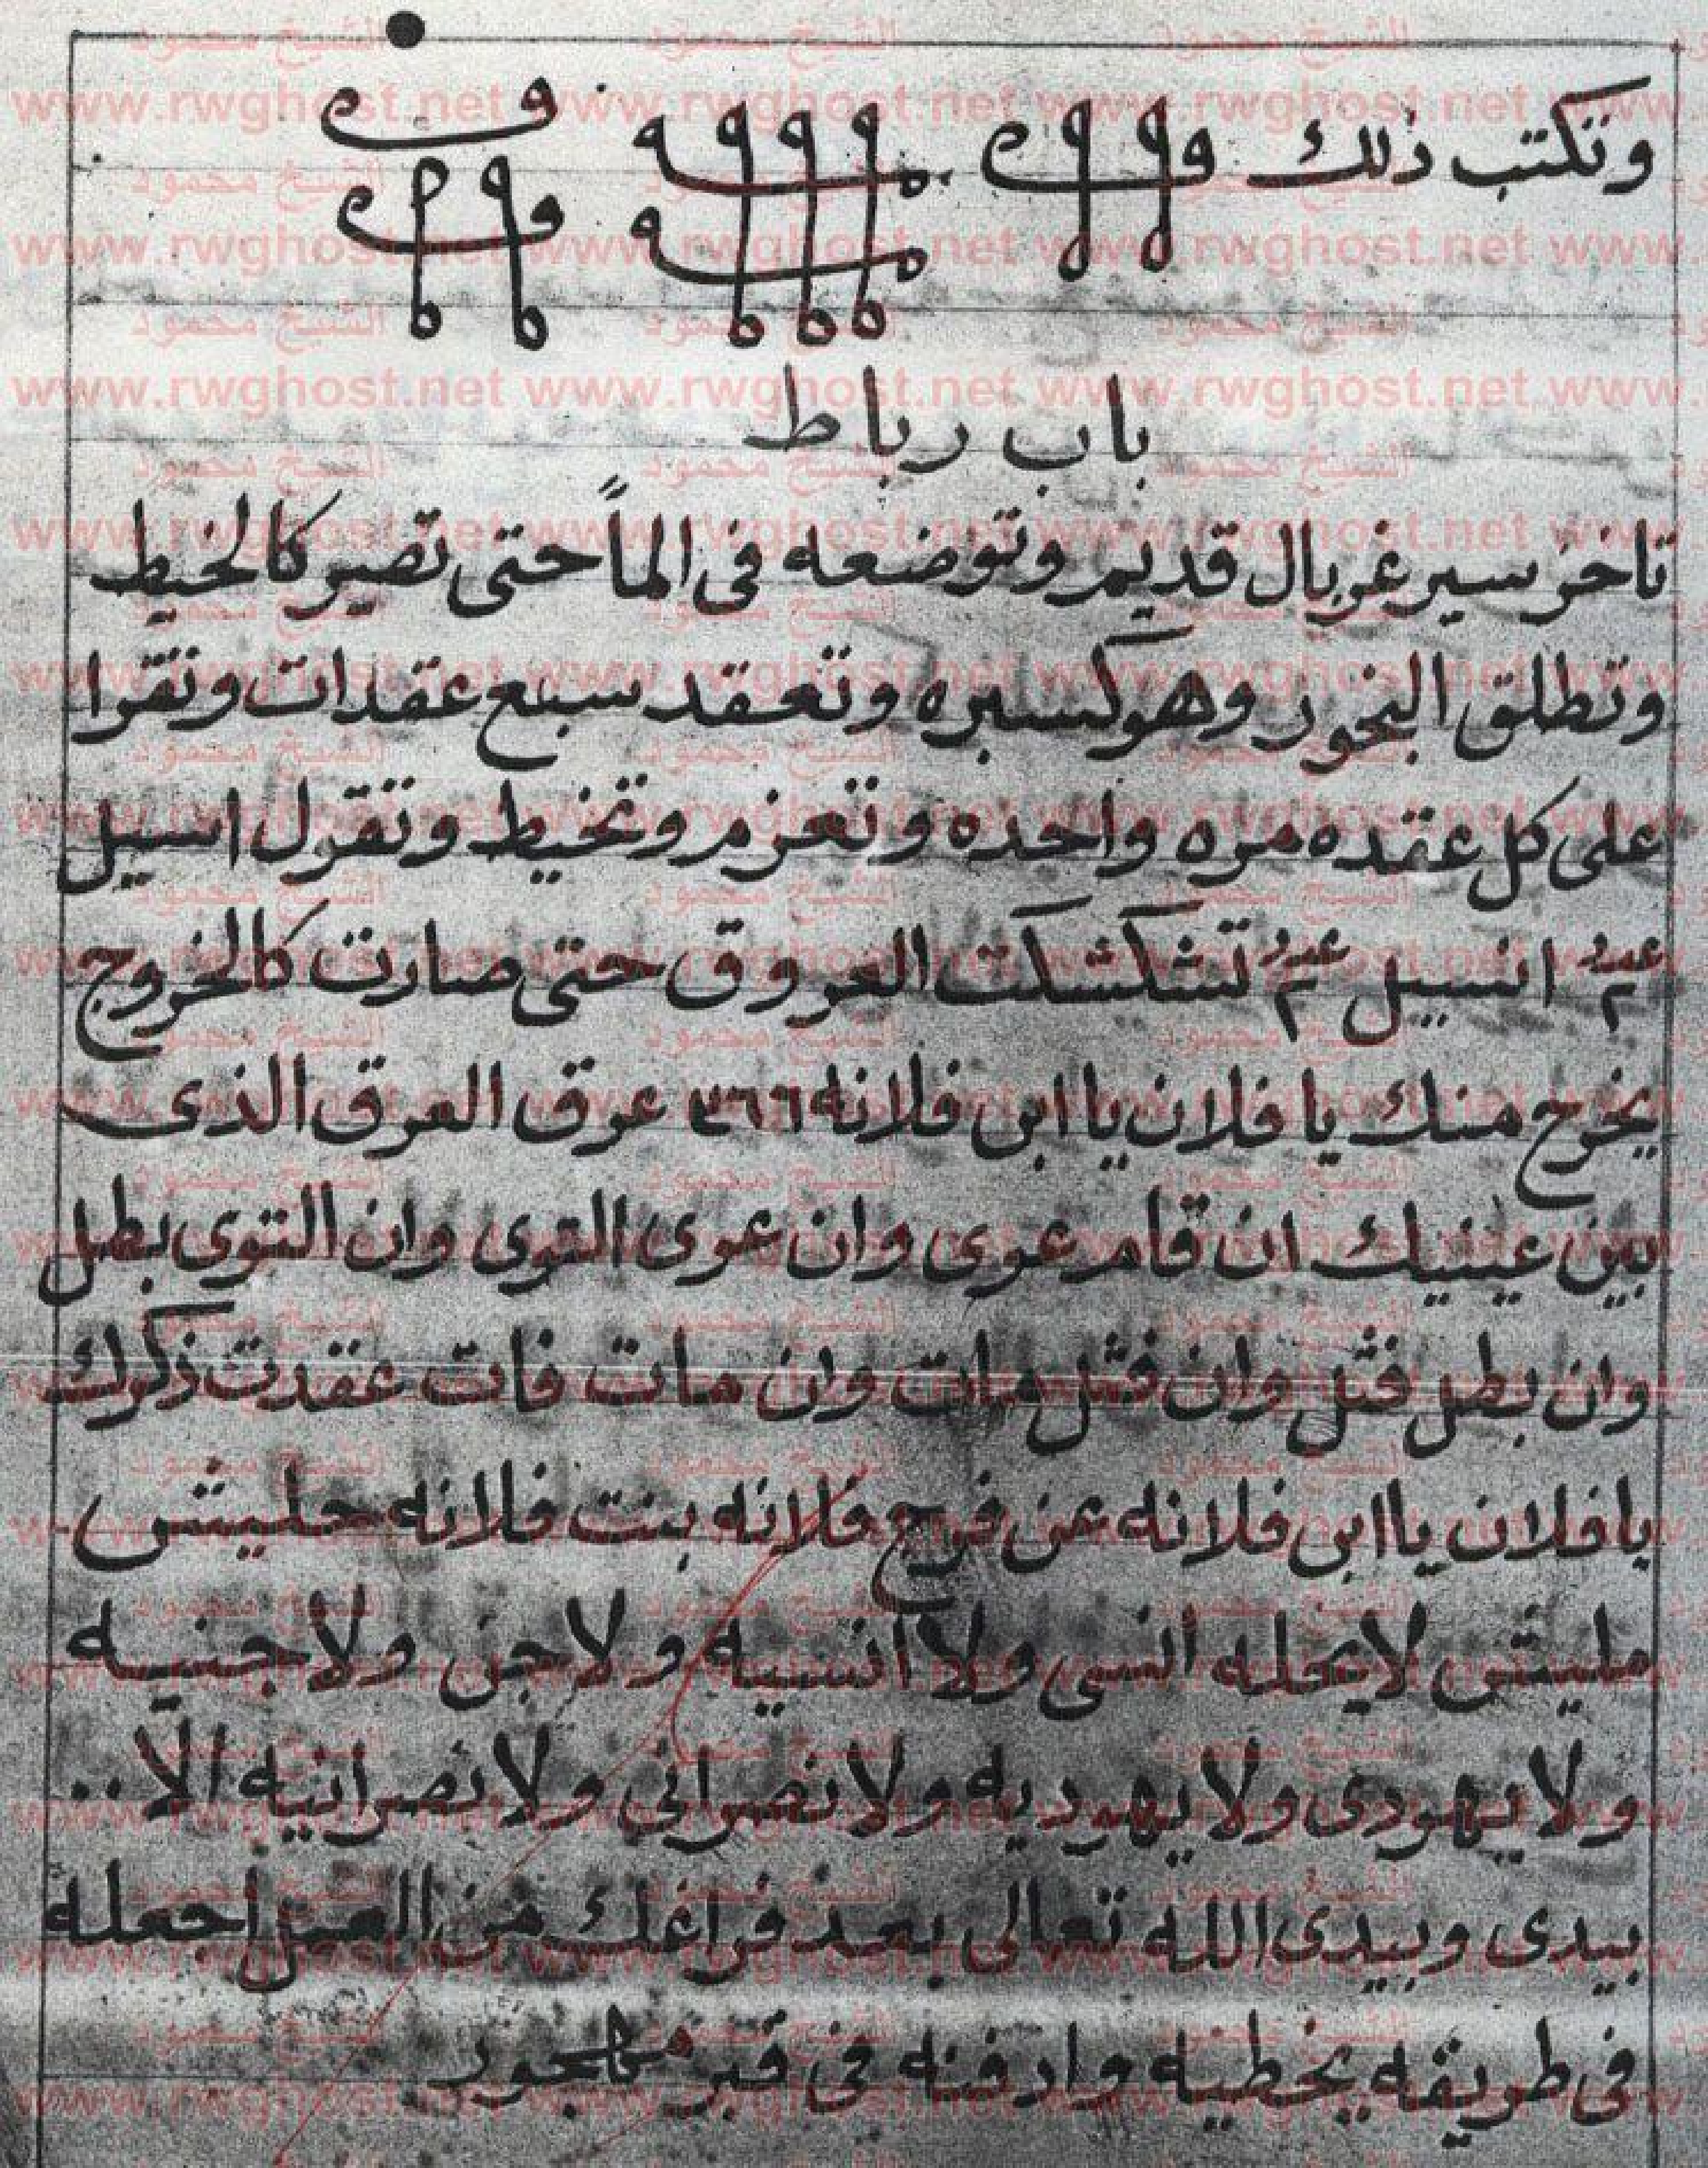 وتكتب ذلك
باب رباط
تاخذ سير غربال قديم وتوضعه فى الماً حتى تصير كالخيط
وتطلق البخور وهو كسبره وتعقد سبع عقدات وتقرا
على كل عقده مره واحده وتعزم وتخيط وتقول اسيل
عدد ٢ انسيل عدد ٢ تشكشكت العروق حتى صارت كالخروج
يخرج منك يا فلان يا ابن فلانه ٣٦٦ عرق العرق الذى
بين عينيك ان قام عوى وان عوى التوى وان التوى بطل
وان بطل فشل وان فشل مات وان مات فات عقدت ذكرك
يا فلان يا ابن فلانه عن فرج فلانه بنت فلانه حليش
مليش لا يحله انسى ولا انسيه ولا جن ولا جنيه
ولا يهودى ولا يهوديه ولا نصرانى ولا نصرانيه الا ..
بيدى وبيدى الله تعالى بعد فراغك من العمل اجعله
فى طريقه يخطيه وادفنه فى قبر مهجور
www.rwghost.net
الشيخ محمود